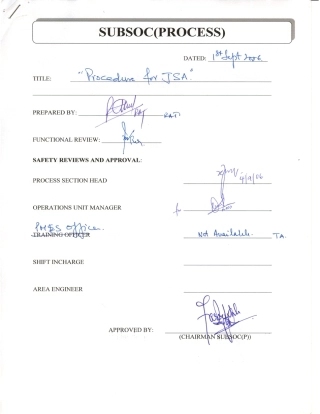 SUBSOC(PROCESS)
DATED: 1st Sept 2006
TITLE: "Procedure for JSA"
PREPARED BY:
FUNCTIONAL REVIEW:
SAFETY REVIEWS AND APPROVAL:
PROCESS SECTION HEAD 4/9/06
OPERATIONS UNIT MANAGER
Office
TRAINING OFFICER Not Available. TA.
SHIFT INCHARGE
AREA ENGINEER
APPROVED BY:
(CHAIRMAN SUBSOC(P))